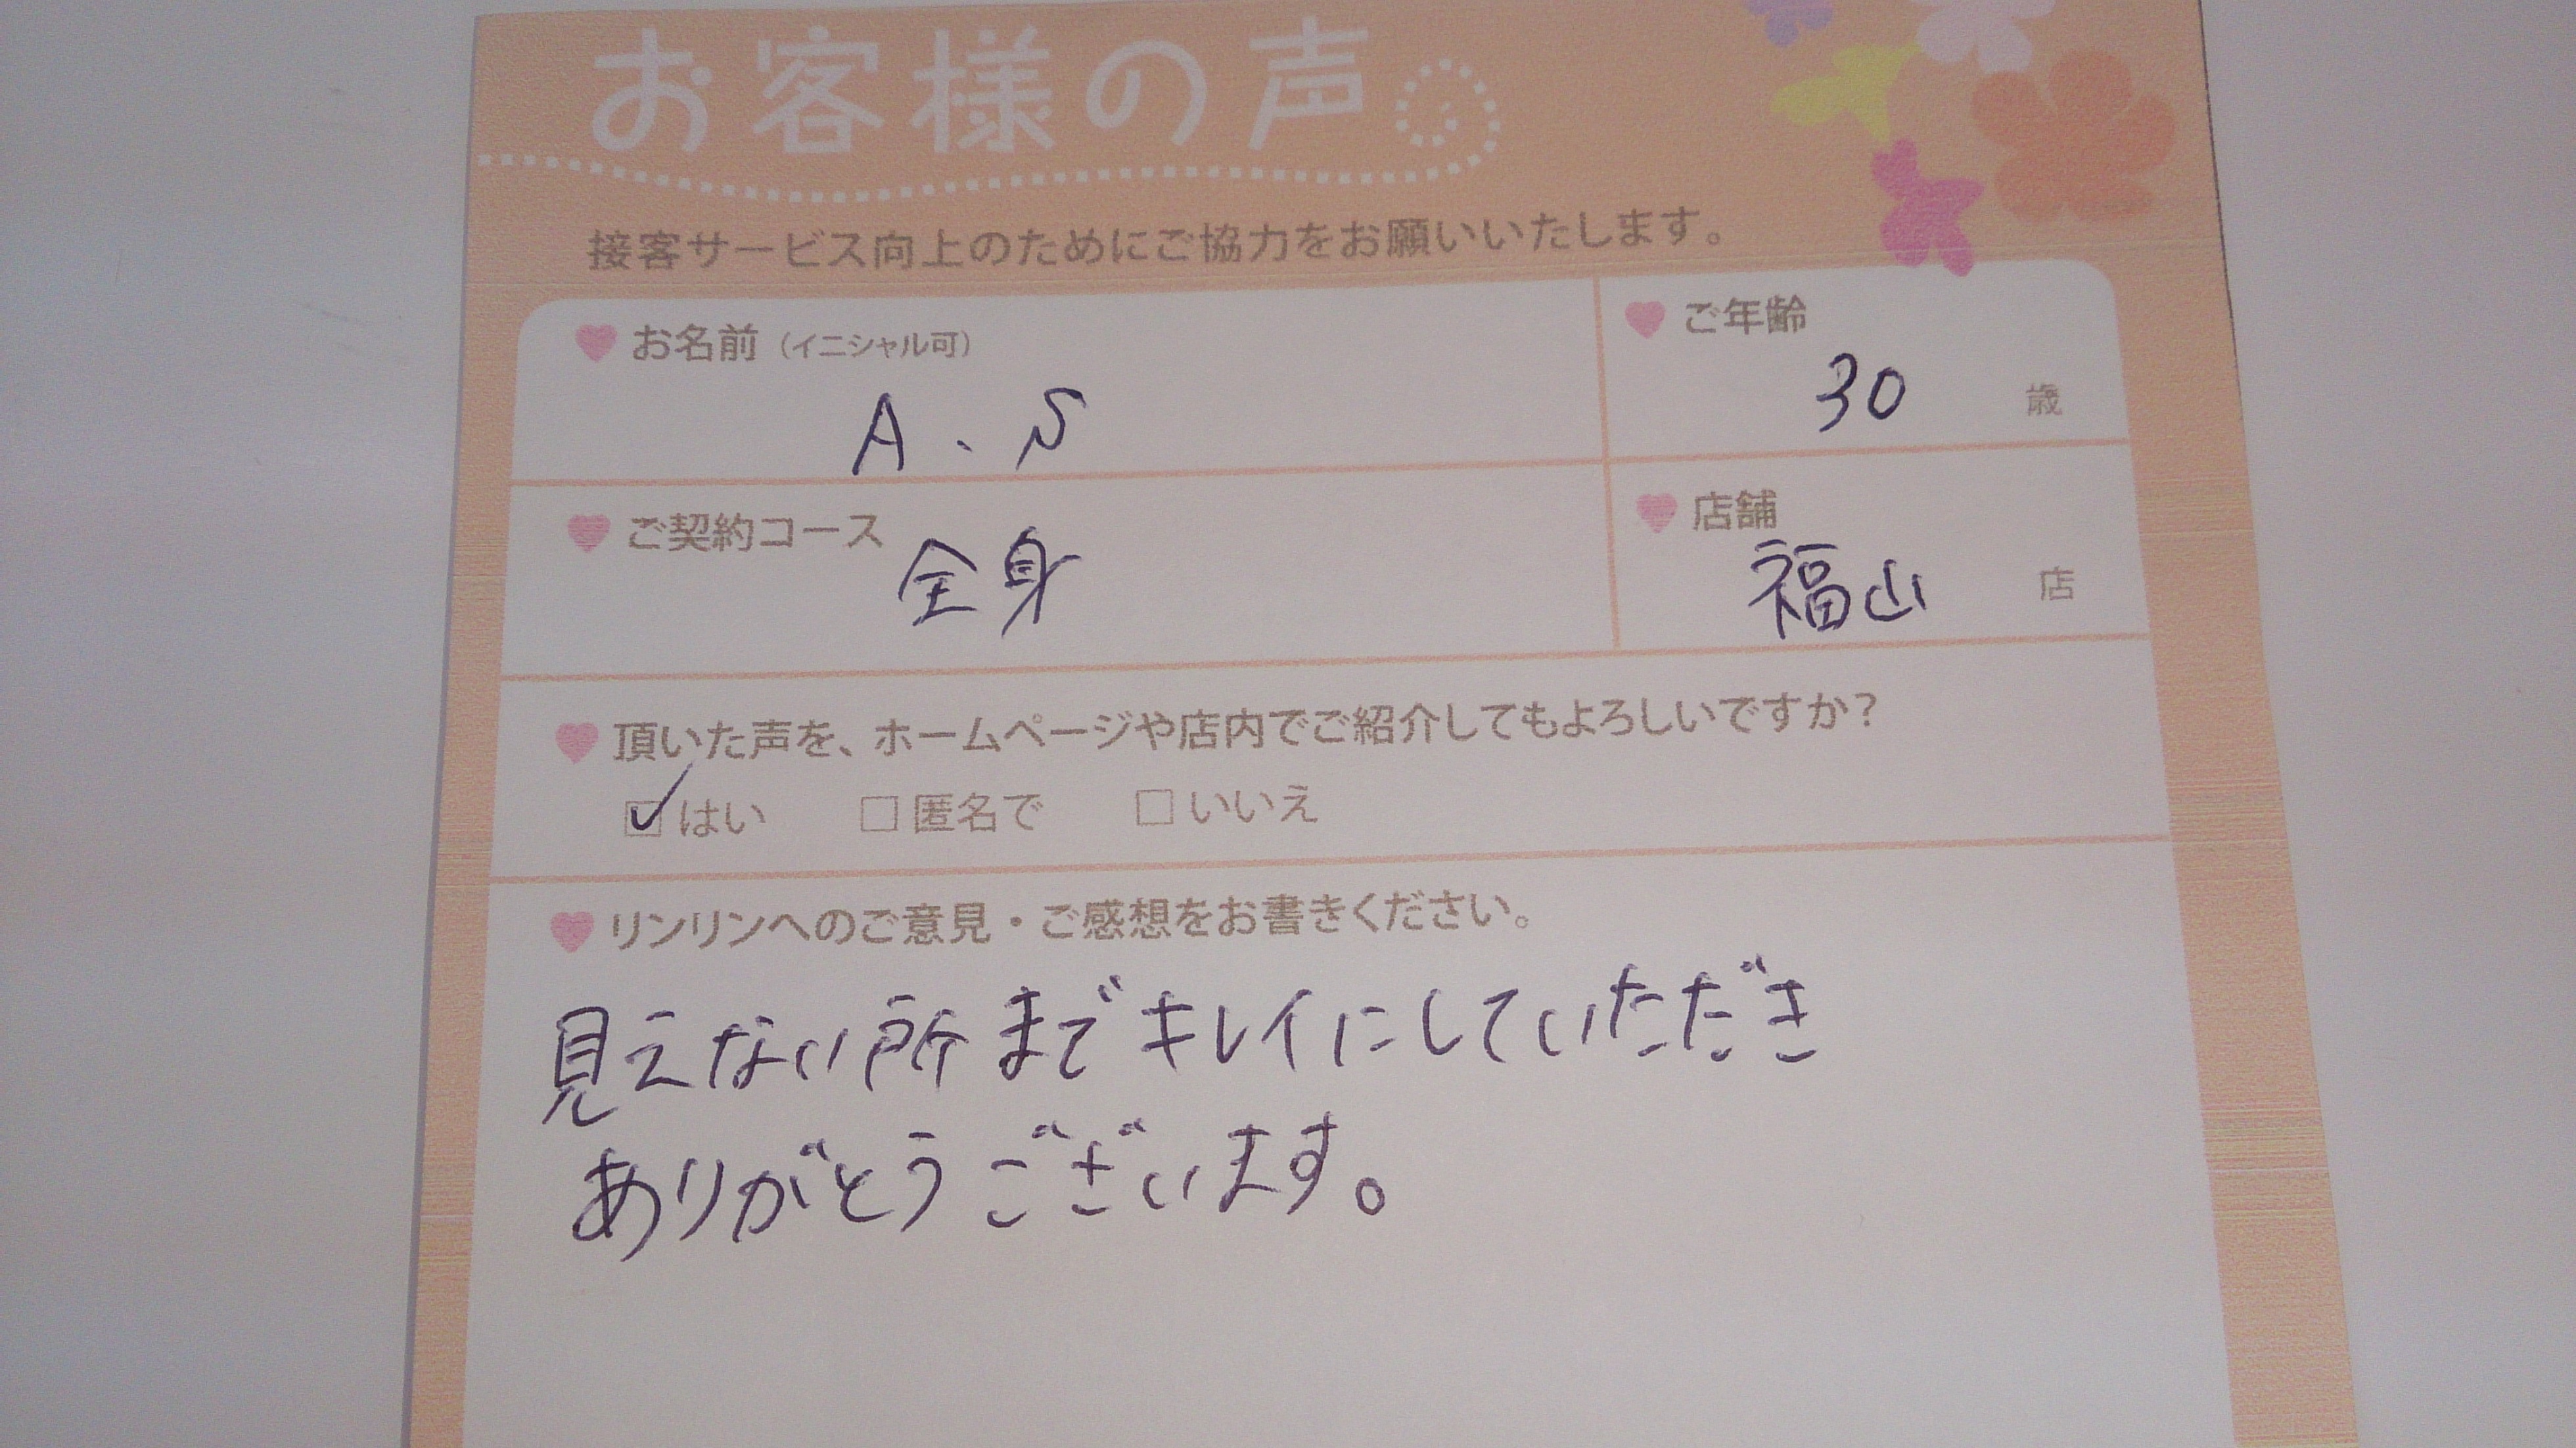 お客様の声。
接客サービス向上のためにご協力をお願いいたします。
お名前（イニシャル可）
A.S
ご年齢
30 歳
ご契約コース
全身
店舗
福山 店
頂いた声を、ホームページや店内でご紹介してもよろしいですか？
☑はい □匿名で □いいえ
リンリンへのご意見・ご感想をお書きください。
見えない所までキレイにしていただき
ありがとうございます。